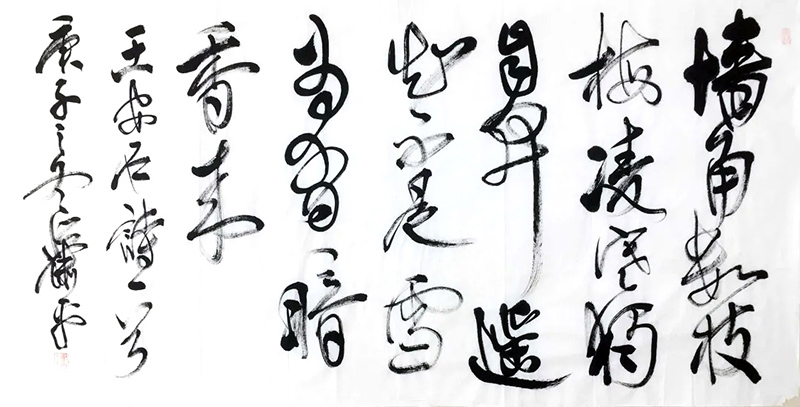 墙角数枝
梅凌寒独
自开遥
知不是雪
为有暗
香来
王安石詩一首
庚子之冬